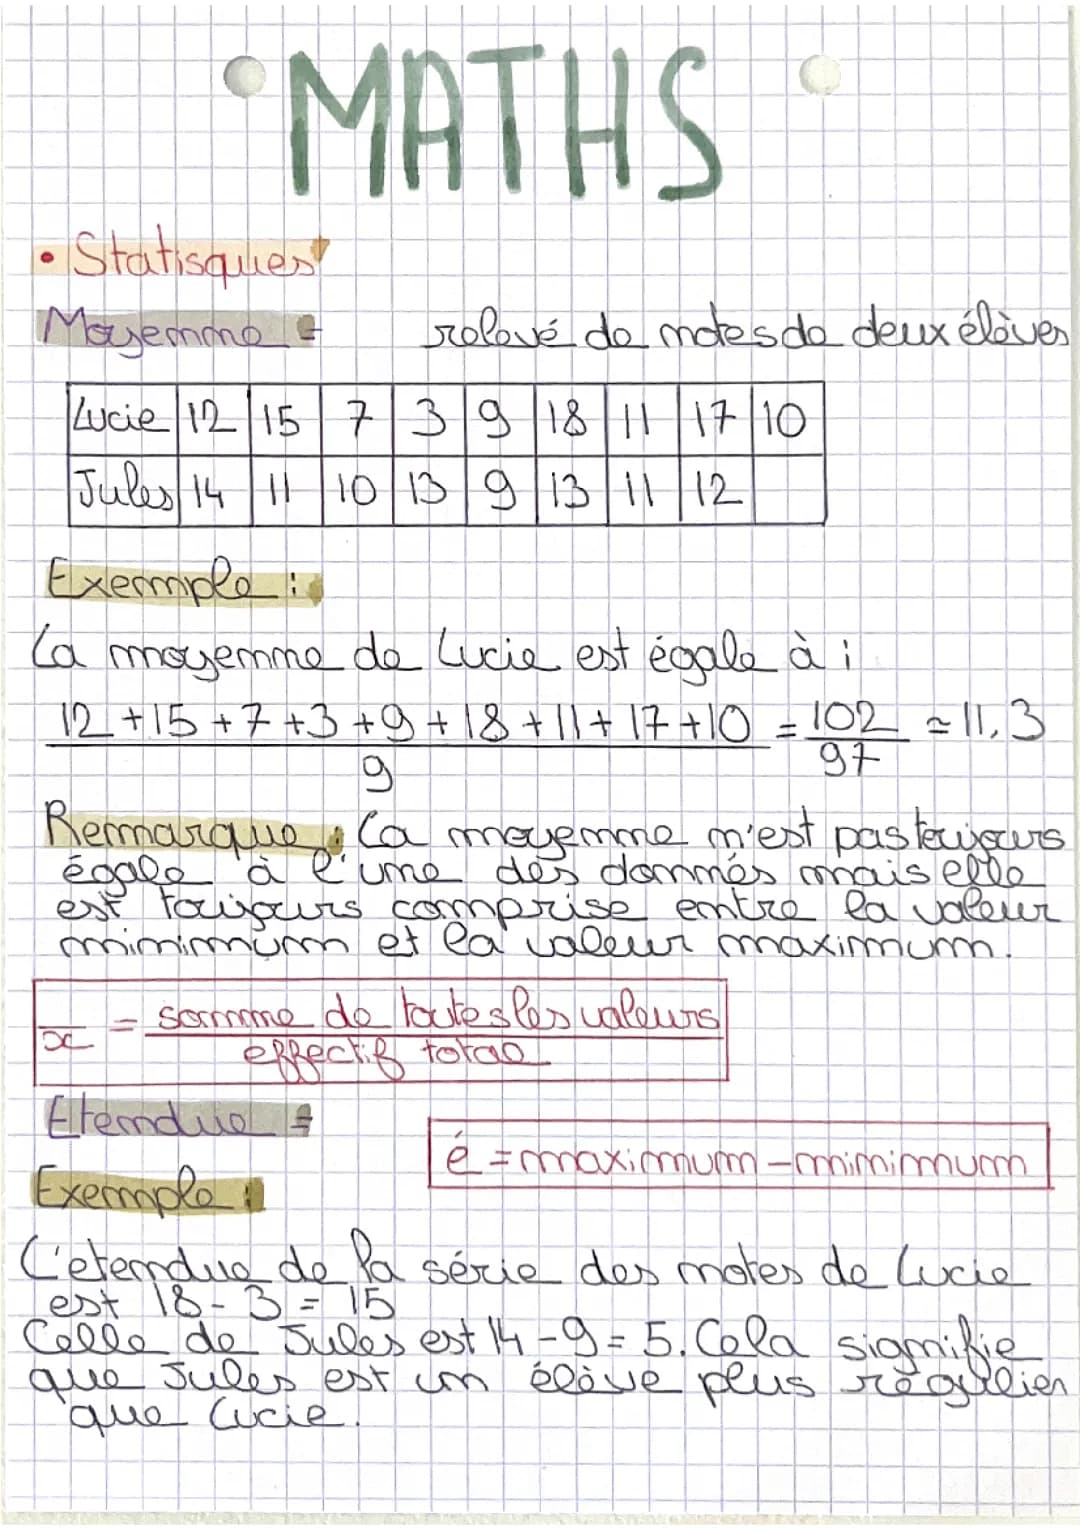 MATHS
• Statisques
Moyenne = relevé de notes de deux élèves
Lucie 12 15 7 3 9 18 11 17 10
Jules 14 11 10 13 9 13 11 12
Exemple :
La moyenne de Lucie est égale à :
12 + 15 + 7 + 3 + 9 + 18 + 11 + 17 + 10 = 102 ≈ 11,3
9 97
Remarque : La moyenne n'est pas toujours
égale à l'une des donnés mais elle
est toujours comprise entre la valeur
minimum et la valeur maximum.
x = somme de toutes les valeurs
effectif total
Etendue =
é = maximum - minimum
Exemple :
L'etendue de la série des notes de Lucie
est 18 - 3 = 15
Celle de Jules est 14 - 9 = 5. Cela signifie
que Jules est un élève plus régulier
que Lucie.